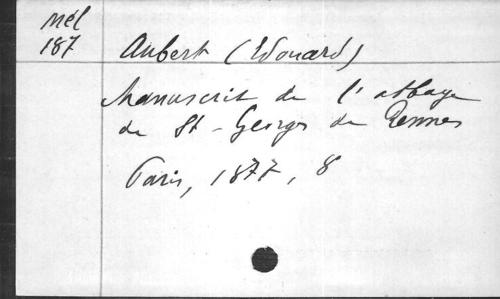 Mél
187
Aubert (Edouard)
Manuscrit de l'abbaye
de St-Georges de Rennes
Paris, 1877, 8